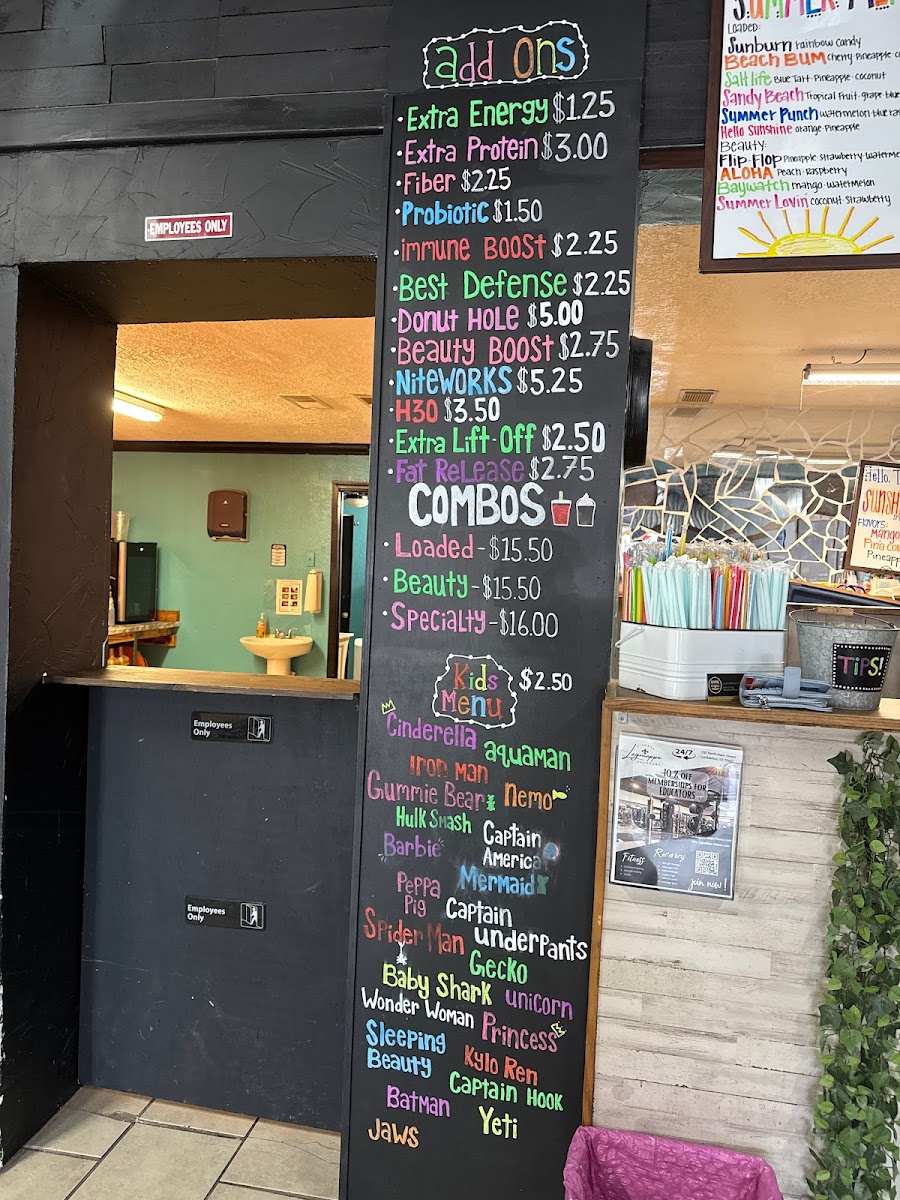 add ons
·Extra Energy $1.25
·Extra Protein $3.00
·Fiber $2.25
·Probiotic $1.50
·immune BOOST $2.25
·Best Defense $2.25
·Donut HOLE $5.00
·Beauty BOOST $2.75
·NiteWORKS $5.25
·H30 $3.50
·Extra Lift-Off $2.50
·Fat ReLease $2.75
COMBOS
·Loaded-$15.50
·Beauty-$15.50
·Specialty-$16.00
Kids Menu $2.50
Cinderella
aquaman
Iron man
Gummie Bear
Nemo
Hulk Smash
Captain
America
Barbie
Mermaid
Peppa
Pig
Captain
underpants
Spider Man
Gecko
Baby Shark
unicorn
Wonder Woman
Princess
Sleeping
Beauty
Kylo Ren
Captain Hook
Batman
Yeti
Jaws
EMPLOYEES ONLY
Employees
Only
Employees
Only
SUMMER
LOADED:
Sunburn rainbow candy
Beach Bum cherry·Pineapple
Salt life Blue Tart·Pineapple·coconut
Sandy Beach Tropical Fruit·grape
Summer Punch watermelon
Hello Sunshine orange·Pineapple
Beauty:
Flip-Flop Pineapple·Strawberry
ALOHA Peach·Raspberry
Baywatch mango·watermelon
Summer Lovin' coconut·Strawberry
Hello.
SUNSH
Flavors:
mango
Pina
Pineapp
TiPS!
Lagniappe
24/7
10% OFF
MEMBERSHIPS FOR
EDUCATORS
Fitness
Recovery
join now!